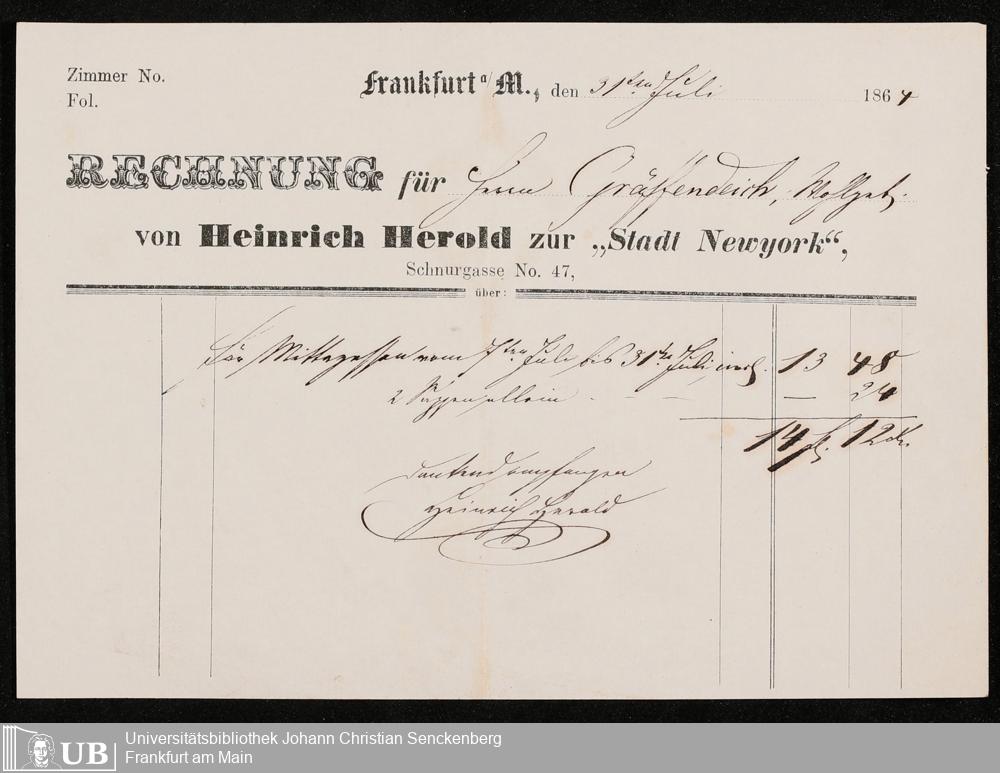 Zimmer No.
Fol.
Frankfurt a/M., den 31ten Juli 1864
RECHNUNG für Herrn Gräffendeich,
von Heinrich Herold zur „Stadt Newyork“,
Schnurgasse No. 47,
über:
Für Mittagessen vom 7ten Juli bis 31ten Juli incl. 13 48
2 Suppen allein - - — 24
14 fl. 12 kr.
dankend empfangen
Heinrich Herold
UB
Universitätsbibliothek Johann Christian Senckenberg
Frankfurt am Main